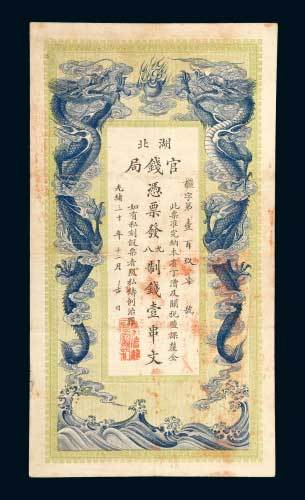 湖北
官錢局
字第壹百 號
此票准完納本省丁漕及關稅鹽課釐金
憑票發九八制錢壹串文
如有私刻假票者照私鑄例治罪
光緒二十 年十二月 日